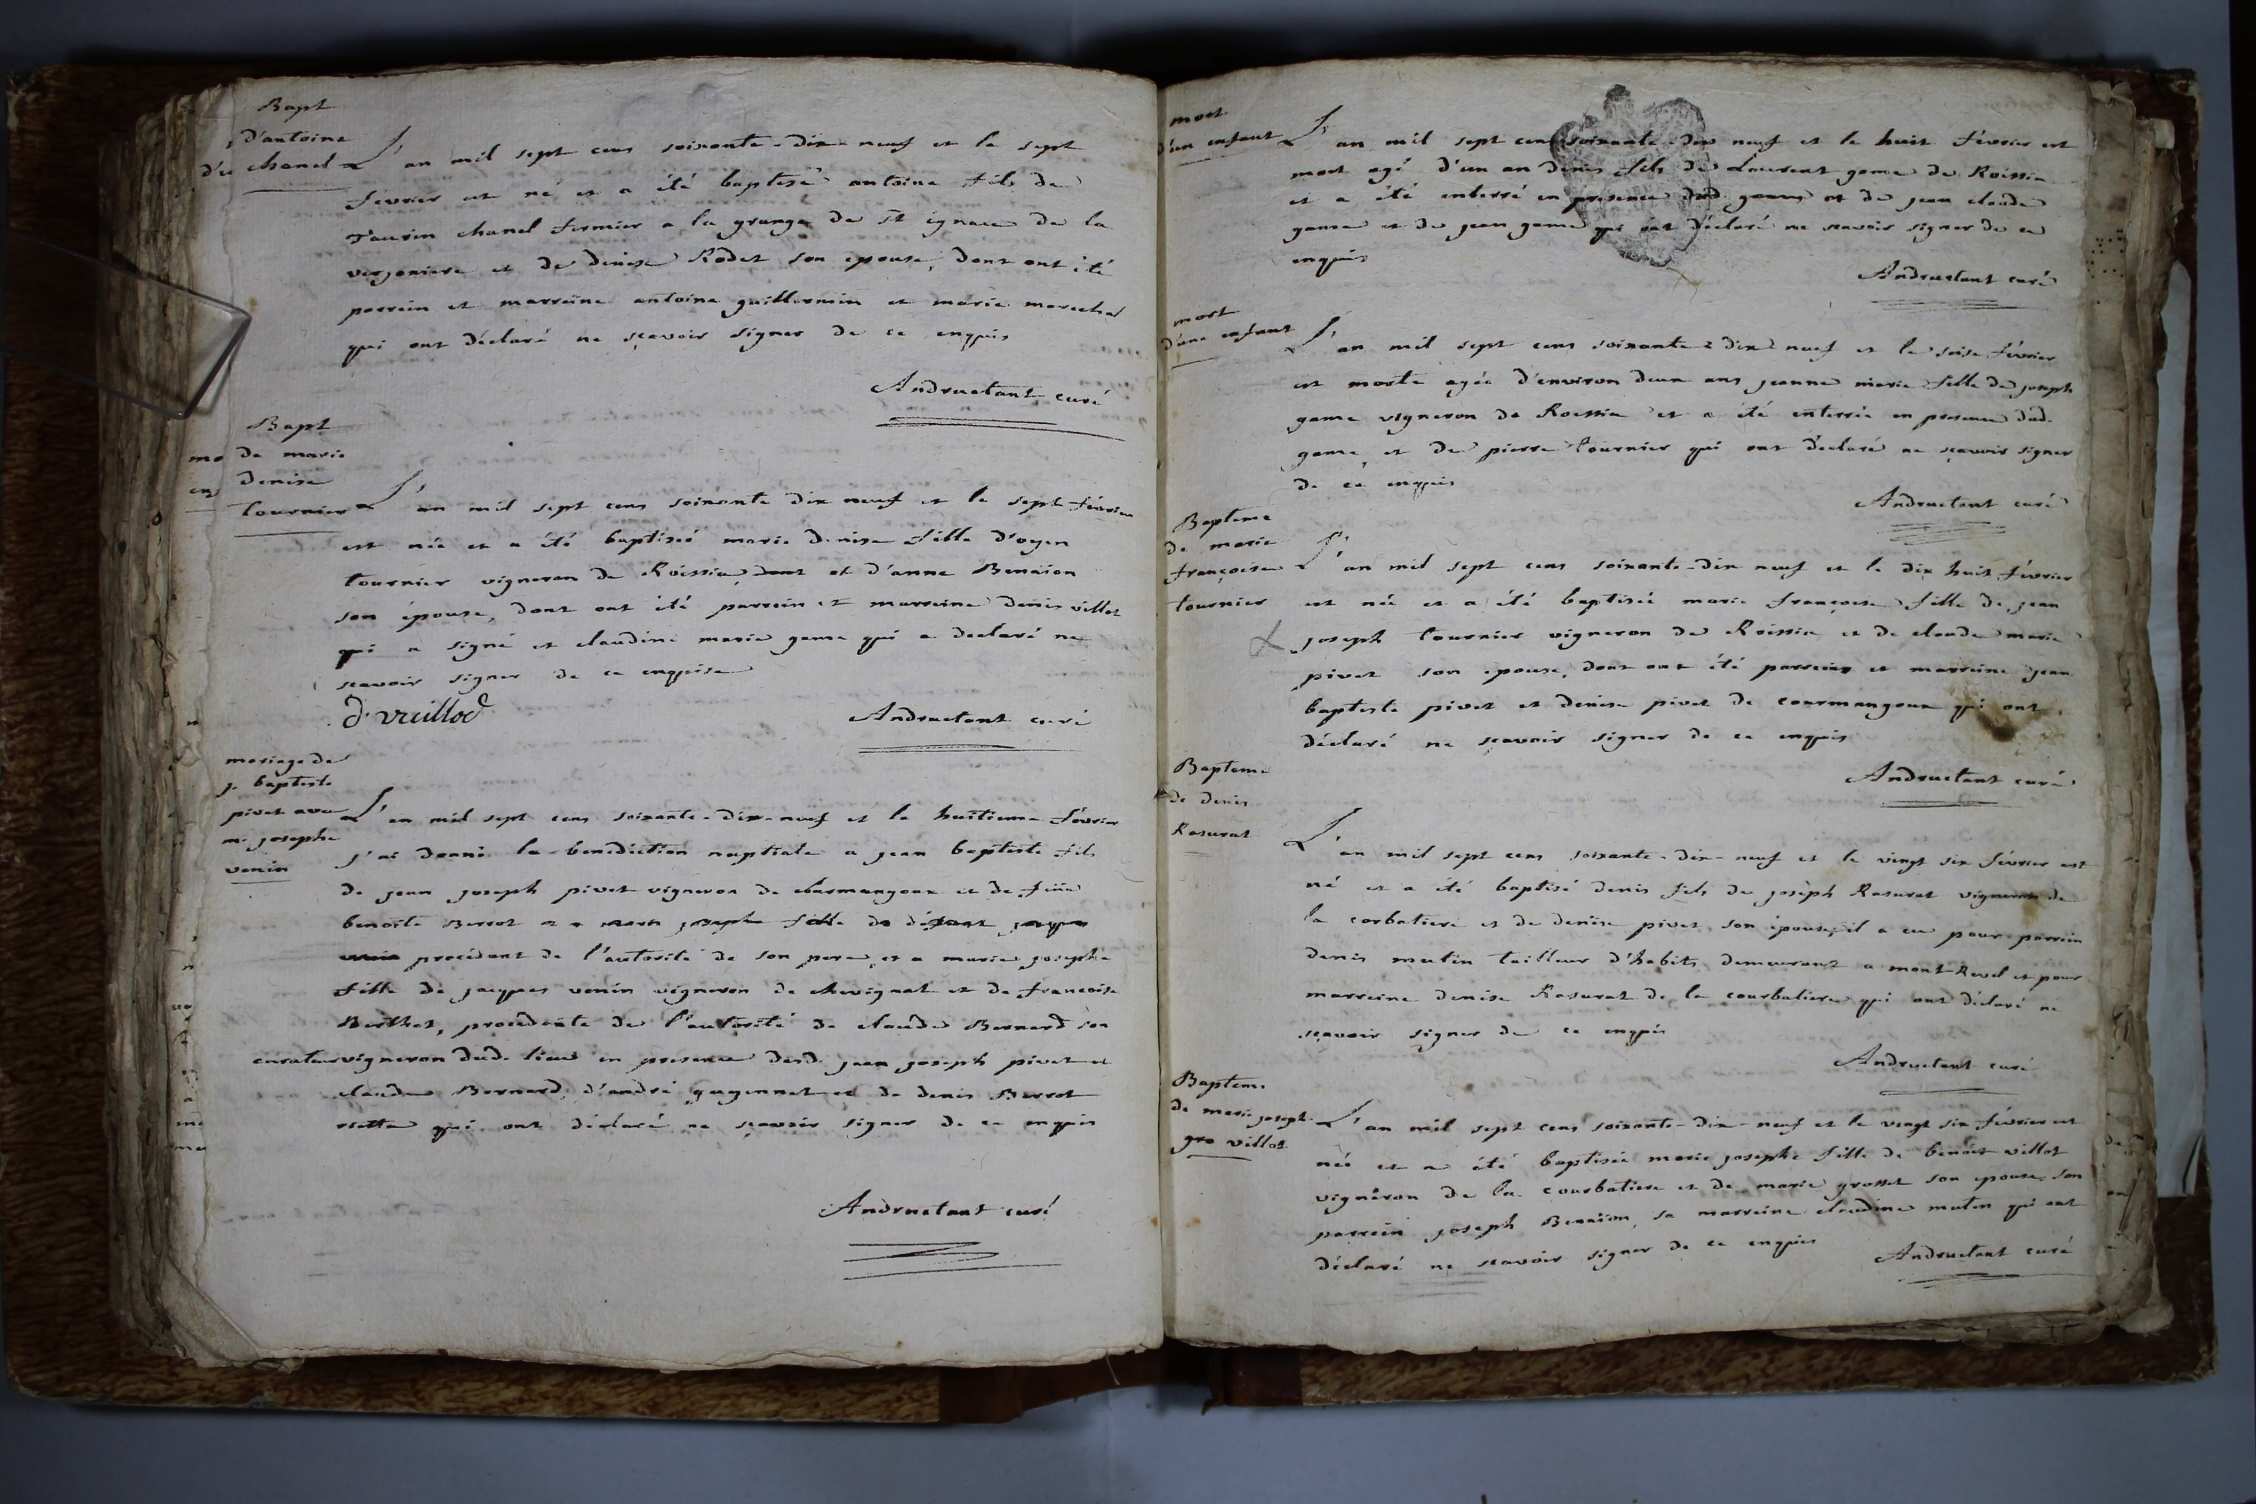 Bapt
d'antoine
chanel
L'an mil sept cens soixante-dix-neuf et le sept
fevrier est né et a été baptisé antoine fils de
Taurin chanel fermier a la grange de st ignace de la
verjoniere et de denise Rodet son epouse, dont ont été
parrein et marreine antoine guillermin et marie marechal
qui ont déclaré ne sçavoir signer de ce enquis
Andructant curé
Bapt
de marie
denise
tournier
L'an mil sept cens soixante dix neuf et le sept février
est née et a été baptisée marie denise fille d'oyen
tournier vigneron de Roissia dont et d'anne Benaion
son épouse, dont ont été parrein et marreine denis villot
qui a signé et claudine marie game qui a declaré ne
scavoir signer de ce enquise
d. vuillod
Andructant curé
mariage de
j. baptiste
pivet avec
m. josephe
venin
L'an mil sept cens soixante-dix-neuf et le huitieme février
j'ai donné la benediction nuptiale a jean baptiste fils
de jean joseph pivet vigneron de charmangoux et de feüe
benoite Berrot et a marie josephe fille de défunt jacques
venin procédant de l'autorité de son pere, et a marie josephe
fille de jacques venin vigneron de chevignat et de françoise
Berthet, procedente de l'autorité de claude Bernard son
curateur vigneron dud. lieu en presence desd. jean joseph pivet et
claude Bernard, d'andré guyennet et de denis Berrot
qui ont déclaré ne sçavoir signer de ce enquis
Andructant curé
mort
d'un enfant
L'an mil sept cens soixante-dix neuf et le huit février est
mort agé d'un an denis fils de Laurent game de Roissia
et a été enterré en presence dud. game et de jean claude
game et de jean game qui ont déclaré ne scavoir signer de ce
enquis
Andructant curé
mort
d'une enfant
L'an mil sept cens soixante-dix-neuf et le seise février
est morte agée d'environ deux ans jeanne marie fille de joseph
game vigneron de Roissia et a été enterrée en presence dud.
game, et de pierre tournier qui ont déclaré ne sçavoir signer
de ce enquis
Andructant curé
Bapteme
de marie
françoise
tournier
L'an mil sept cens soixante-dix neuf et le dix huit février
est née et a été baptisée marie françoise fille de jean
joseph tournier vigneron de Roissia et de claude marie
pivet son epouse, dont ont été parrein et marreine jean
baptiste pivet et denise pivet de courmangoux qui ont
déclaré ne sçavoir signer de ce enquis
Andructant curé
Bapteme
de denis
Rasurat
L'an mil sept cens soixante-dix-neuf et le vingt six février est
né et a été baptisé denis fils de joseph Rasurat vigneron de
la corbatiere et de denise pivet son épouse, il a eu pour parrein
denis mutin tailleur d'habits demeurant a mont Revel et pour
marreine denise Rasurat de la courbatiere qui ont déclaré ne
sçavoir signer de ce enquis
Andructant curé
Bapteme
de marie joseph
gro villot
L'an mil sept cens soixante-dix-neuf et le vingt six février est
née et a été baptisée marie josephe fille de benoit villot
vigneron de la courbatiere et de marie grosset son epouse, son
parrein joseph Benaion, sa marreine claudine mutin qui ont
déclaré ne scavoir signer de ce enquis
Andructant curé